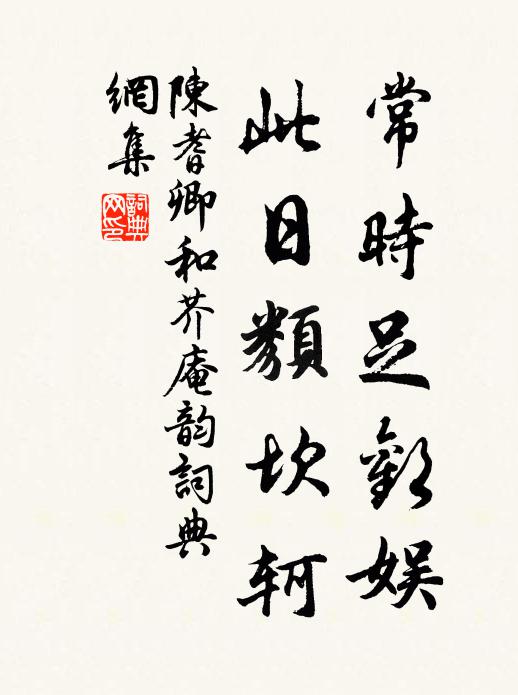 常時足歡娛
此日類坎軻
陳耆卿和芥庵韵詞典
網集
詞典网印